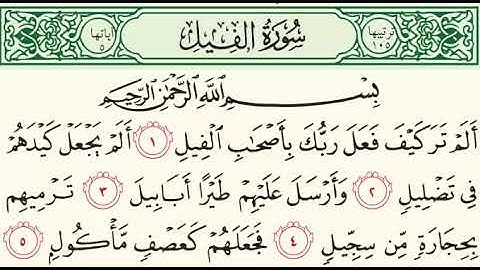 ترتيبها ١٠٥ سُورَةُ الْفِيلِ آياتها ٥
بِسْمِ اللَّهِ الرَّحْمَٰنِ الرَّحِيمِ
أَلَمْ تَرَ كَيْفَ فَعَلَ رَبُّكَ بِأَصْحَابِ الْفِيلِ ١ أَلَمْ يَجْعَلْ كَيْدَهُمْ
فِي تَضْلِيلٍ ٢ وَأَرْسَلَ عَلَيْهِمْ طَيْرًا أَبَابِيلَ ٣ تَرْمِيهِم
بِحِجَارَةٍ مِّن سِجِّيلٍ ٤ فَجَعَلَهُمْ كَعَصْفٍ مَّأْكُولٍ ٥